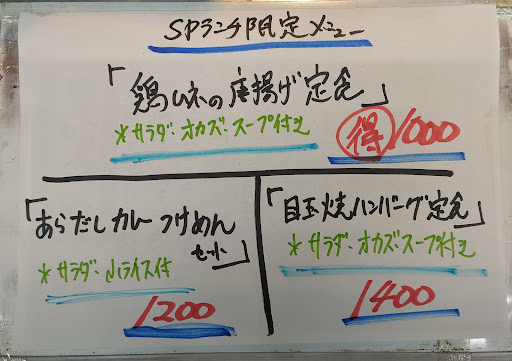 SPランチ限定メニュー
「鶏ムネの唐揚げ定食」
*サラダ・オカズ・スープ付き
得 1000
「あらだしカレーつけめん
セット」
*サラダ・小ライス付
1200
「目玉焼ハンバーグ定食」
*サラダ・オカズ・スープ付き
1400